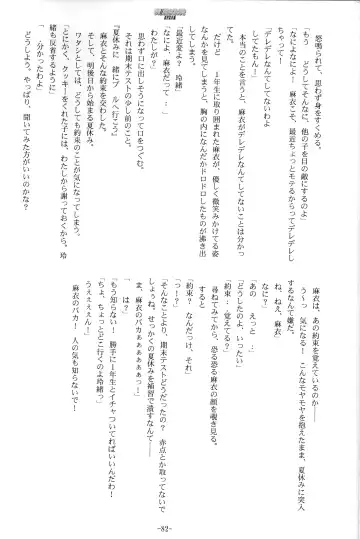 怒鳴られて、思わず身をすくめる。
「もう　どうしてそんなに、他の子を目の敵にするのよ」
「なによなによ！　麻衣こそ、最近ちょっとモテるからってデレデレし
ちゃってっ！」
「デレデレなんてしてないわよ」
本当のことを言うと、麻衣がデレデレなんてしてないことは分かっ
てたもん。
だけど　１年生に取り囲まれた麻衣が、優しく微笑みかけてる姿
なんかを見てしまうと、胸の内になんだかドロドロしたものが沸き出
してしまって…
「最近変よ？　玲緒」
「なによ、麻衣だって…」
「わたしが？」
思わず口に出しそうになって口をつぐむ。
それは期末テストの少し前のこと。
『夏休みに　緒にプールへ行こう』
麻衣とそんな約束を交わした。
そして、明後日から始まる夏休み。
ワタシとしては、どうしても約束が気になってしまう。
「とにかく、クッキーをくれた子には、わたしから謝っておくから、玲
緒も反省するように」
「分かったわよ」
どうしよう、やっぱり、聞いてみた方がいいのかな？
麻衣は、あの約束を覚えているのか――
う～～　気になる！　こんなモヤモヤを抱えたまま、夏休みに突入
するなんて嫌だ。
「ね、ねえ、麻衣」
「どうしたのよ、いったい」
「あの…　えっと　…」
「約束…覚えてる？」
尋ねてみてから、恐る恐る麻衣の顔を覗き見る。
すると
「約束？　なんだっけ、それ」
「っ…！？」
「そんなことより、期末テストどうだったの？　赤点とか取ってないで
しょうね。せっかくの夏休みを補習で潰すなんて――」
「麻衣のバカぁぁぁぁぁっ！」
「は　？」
「もう知らない！　勝手に１年生とイチャついてればいいんだわ！」
「ちょ、ちょっとどこ行くのよ玲緒っ」
うぇぇぇぇん！
麻衣のバカ！　人の気も知らないで！
-82-